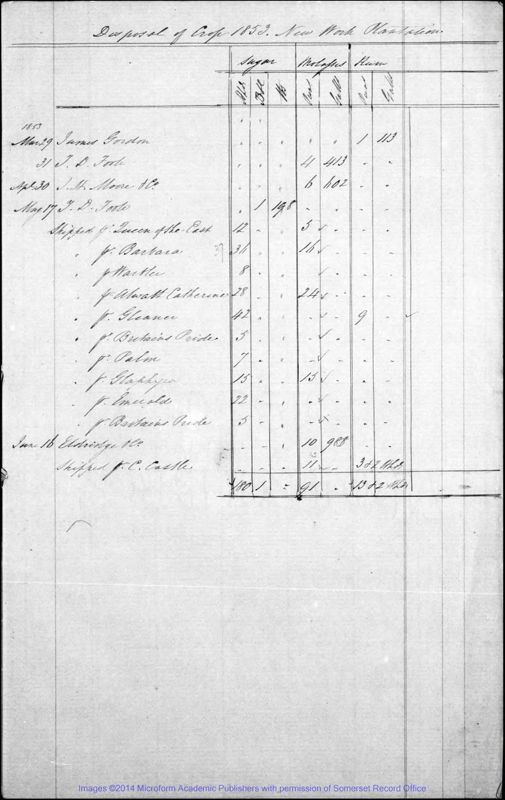 Disposal of Crop 1853. New Work Plantation
Sugar Molasses Rum
Galls Galls
1853
Mar 29 James Gordon 1 113
31 T. D. Foote 4 413
Apl. 30 J. H. Moore & Co 6 602
May 17 T. D. Foote 1 198
Shipped pr. Queen of the East 12 5
" pr. Barbara 36 16
" pr 8
" pr 28 24
" pr. Gleaner 42 9
" pr. Britains Pride 5
" pr. Palm 7
" pr. Glaphyra 15 15
" pr. Emerald 22
" pr. Britains Pride 5
June 16 Eldridge & Co 10 988
Shipped pr. C. Castle 11 3 & 2 Hhds
180 1 91 13 & 2 Hhds
Images ©2014 Microform Academic Publishers with permission of Somerset Record Office